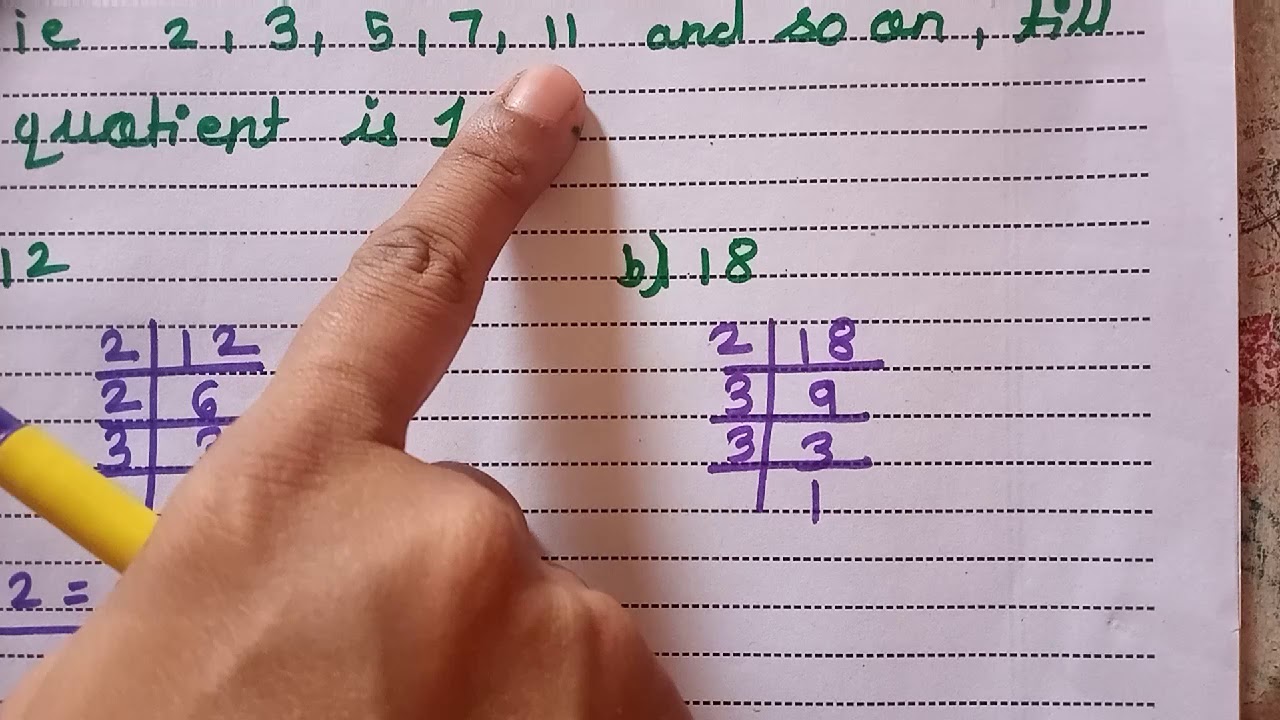 ie 2, 3, 5, 7, 11 and so on, till
quotient is 1
12
2 12
2 6
3
2 =
b) 18
2 18
3 9
3 3
1